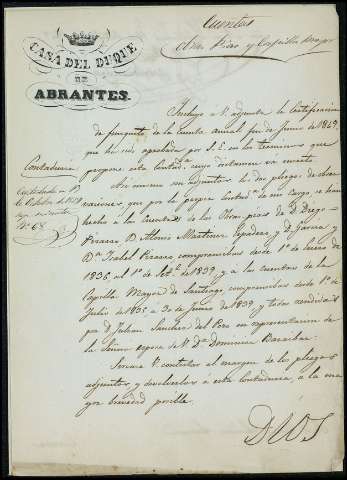 Cuentas
Obras Pias y Capilla Mayor
CASA DEL DUQUE
DE
ABRANTES.
Contaduría
Contestada en 13
de Octubre de 1849
Nº 68
Incluyo á V. adjunta la Certificacion
de finiquito de la Cuenta anual fin de Junio de 1847
que ha sido aprobada por S. E. en los terminos que
propone esta Contadª cuyo dictamen va inserto.
Asi mismo son adjuntos los dos pliegos de obser
vaciones que por la propia Contadª de mi cargo se han
hecho á la Cuenta de las Obras pias de D. Diego
Pizarro, D. Alonso Martinez Espadero y D. Garcia y
Dª Isabel Pizarro comprensibas desde 1º de Enero de
1836 al 1º de Setᵉ de 1839, y á las cuentas de la
Capilla Mayor de Santiago comprensibas desde 1º de
Julio de 1835 á 30 de Junio de 1839, y todas rendidas
por D. Julian Sanchez del Pozo en representacion de
la Señora esposa de V. Dª Dominica Baraibar.
Servirá V. contestar al margen de los pliegos
adjuntos y devolverlos á esta Contaduria á la ma
yor brevedad posible.
DIOS